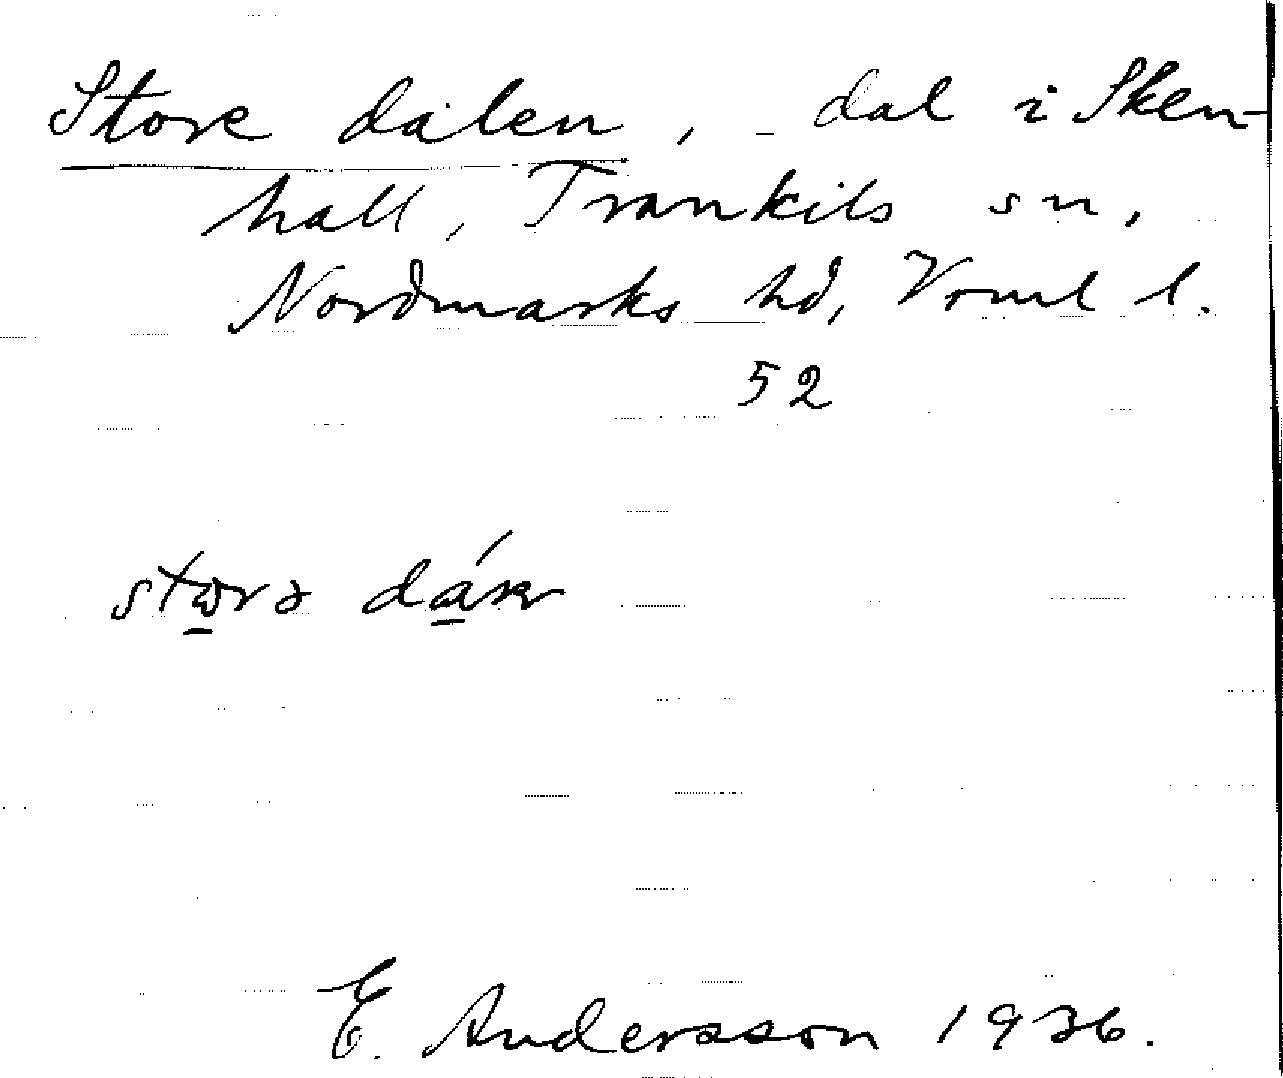 Store dalen, dal i Sken-
hall, Trankils sn,
Nordmarks hd, Vrml l.
52
E. Andersson 1936.